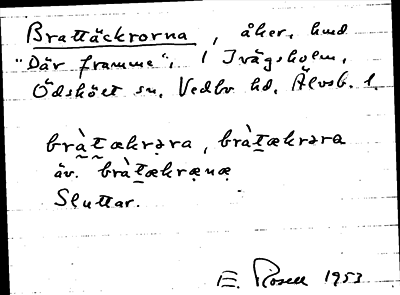 Brattäckrorna, åker, hmd
"Där framme", 1 Ivägsholm,
Ödsköłt sn. Vedbo hd. Älvsb. l.
bràt̰ækrəra, bràt̲ækrəra
äv. bràt̲ækræ̣næ̣
Sluttar.
E. Rosell 1953